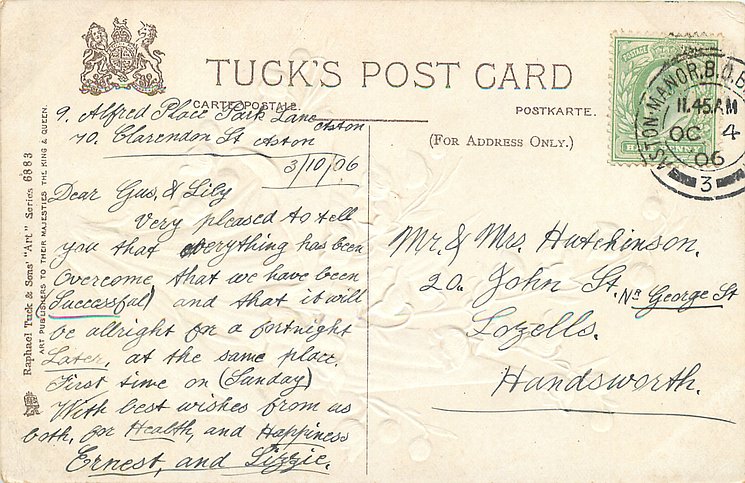 TUCK'S POST CARD
CARTE POSTALE.
POSTKARTE.
(FOR ADDRESS ONLY.)
Raphael Tuck & Sons' "Art" Series 6883
ART PUBLISHERS TO THEIR MAJESTIES THE KING & QUEEN.
POSTAGE
HALF PENNY
ASTON-MANOR.B.O.B
11.45AM
OC 4
06
3
9. Alfred Place Park Lane
Aston
70. Clarendon St Aston
3/10/06
Dear Gus, & Lily
Very pleased to tell
you that everything has been
Overcome, that we have been
Successful, and that it will
be allright for a fortnight
Later, at the same place.
First time on (Sunday)
With best wishes from us
both, for Health, and Happiness
Ernest, and Lizzie.
Mr. & Mrs. Hutchinson.
20. John St. Nr George St
Lozells.
Handsworth.